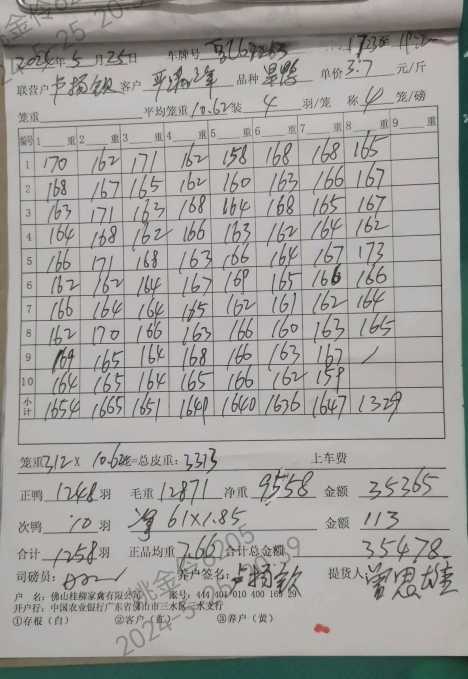 2024年5月25日 车牌号
联营户 卢扬钦 客户 品种 单价 3.7 元/斤
笼重 平均笼重 10.62 装 4 羽/笼 称 4 笼/磅
编号 1 重 2 重 3 重 4 重 5 重 6 重 7 重 8 重 9 重
1 170 162 171 162 158 168 168 165
2 168 167 165 162 160 163 166 167
3 163 171 163 168 164 168 165 167
4 164 168 162 166 163 162 164 162
5 166 171 168 163 166 164 167 173
6 162 162 164 167 169 165 166 166
7 166 164 164 165 162 161 162 164
8 162 170 166 163 166 160 163 165
9 169 165 164 168 166 163 167 /
10 164 165 164 165 166 162 159
小计 1654 1665 1651 1649 1640 1636 1647 1329
笼重 312 × 10.62 =总皮重: 3313 上车费
正鸭 1248 羽 毛重 12871 净重 9558 金额 35365
次鸭 10 羽 净 61×1.85 金额 113
合计 1258 羽 正品均重 7.66 合计总金额 35478
司磅员: 养户签名: 卢扬钦 提货人:
户 名: 佛山桂柳家禽有限公司 账号: 444 401 010 400 169 29
开户行: 中国农业银行广东省佛山市三水区三水支行
①存根 (白) ②客户 (蓝) ③养户 (黄)